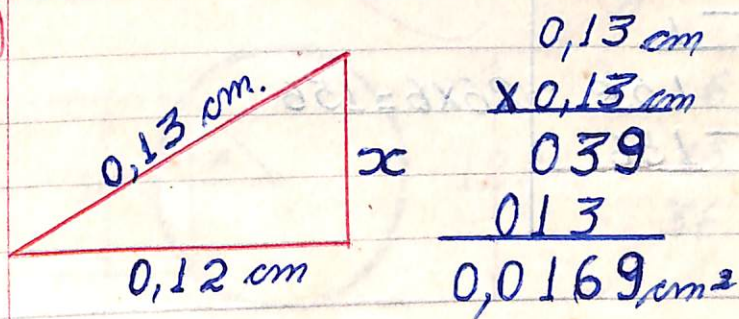 )
0,13 cm.
x
0,12 cm
0,13 cm
x 0,13 cm
039
013
0,0169 cm²